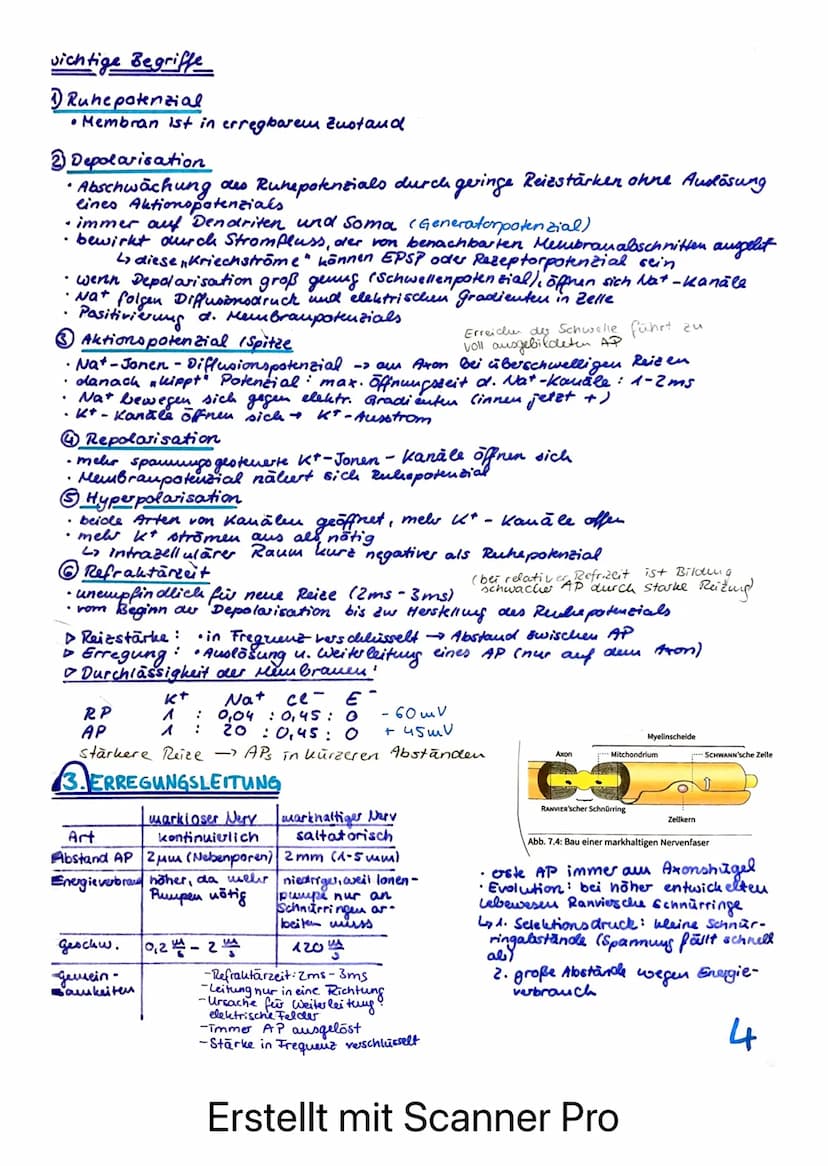 wichtige Begriffe
1) Ruhepotenzial
• Membran ist in erregbarem Zustand
2) Depolarisation
• Abschwächung des Ruhepotenzials durch geringe Reizstärken ohne Auslösung
eines Aktionspotenzials
• immer auf Dendriten und Soma (Generatorpotenzial)
• bewirkt durch Stromfluss, der von benachbarten Membranabschnitten ausgeht
↳ diese „Kriechströme" können EPSP oder Rezeptorpotenzial sein
• wenn Depolarisation groß genug (Schwellenpotenzial), öffnen sich Na⁺-Kanäle
• Na⁺ folgen Diffusionsdruck und elektrischen Gradienten in Zelle
• Positivierung d. Membranpotenzials
Erreichen der Schwelle führt zu
voll ausgebildeten AP
3) Aktionspotenzial / Spitze
• Na⁺-Jonen-Diffusionspotenzial → am Axon bei überschwelligen Reizen
• danach „kippt" Potenzial: max. Öffnungszeit d. Na⁺-Kanäle: 1-2ms
• Na⁺ bewegen sich gegen elektr. Gradienten (innen jetzt +)
• K⁺-Kanäle öffnen sich → K⁺-Ausstrom
4) Repolarisation
• mehr spannungsgesteuerte K⁺-Jonen-Kanäle öffnen sich
• Membranpotenzial nähert sich Ruhepotenzial
5) Hyperpolarisation
• beide Arten von Kanälen geöffnet, mehr K⁺-Kanäle offen
• mehr K⁺ strömen aus als nötig
↳ Intrazellulärer Raum kurz negativer als Ruhepotenzial
6) Refraktärzeit
(bei relativer Refr.zeit ist Bildung
schwacher AP durch starke Reizung)
• unempfindlich für neue Reize (2ms - 3ms)
• vom Beginn der Depolarisation bis zur Herstellung des Ruhepotenzials
▷ Reizstärke: • in Frequenz verschlüsselt → Abstand zwischen AP
▷ Erregung: • Auslösung u. Weiterleitung eines AP (nur auf dem Axon)
▷ Durchlässigkeit der Membranen:
K⁺ Na⁺ Cl⁻ E⁻
RP 1 : 0,04 : 0,45 : 0 - 60mV
AP 1 : 20 : 0,45 : 0 + 45mV
Stärkere Reize → APs in kürzeren Abständen
3. ERREGUNGSLEITUNG
markloser Nerv markhaltiger Nerv
Art kontinuierlich saltatorisch
Abstand AP 2µm (Nebenporen) 2mm (1-5mm)
Energieverbrauch höher, da mehr Pumpen nötig niedriger, weil Ionen-
pumpe nur an
Schnürringen ar-
beiten muss
Geschw. 0,2 m/s - 2 m/s 120 m/s
Gemein-
samkeiten
- Refraktärzeit: 2ms - 3ms
- Leitung nur in eine Richtung
- Ursache für Weiterleitung:
elektrische Felder
- immer AP ausgelöst
- Stärke in Frequenz verschlüsselt
Myelinscheide
Axon Mitchondrium SCHWANN'sche Zelle
RANVIER'scher Schnürring
Zellkern
Abb. 7.4: Bau einer markhaltigen Nervenfaser
• erste AP immer am Axonshügel
• Evolution: bei höher entwickelten
Lebewesen Ranviersche Schnürringe
↳ 1. Selektionsdruck: kleine Schnür-
ringabstände (Spannung fällt schnell
ab)
2. große Abstände wegen Energie-
verbrauch
4
Erstellt mit Scanner Pro